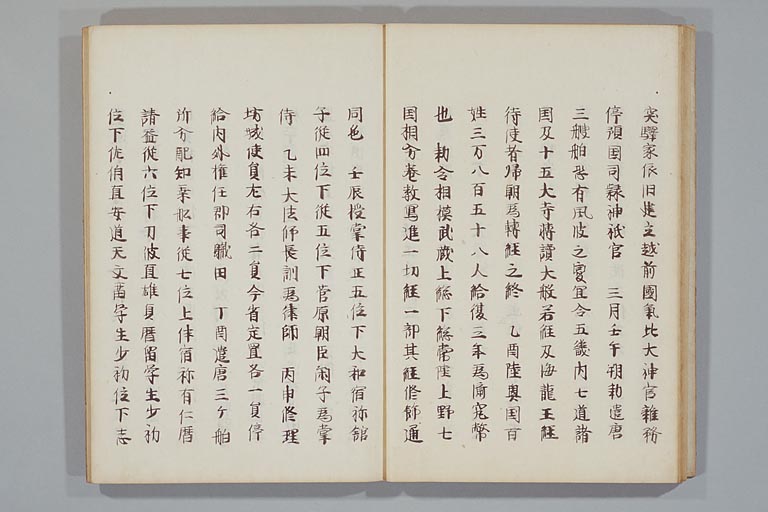 突驛家依旧建立越前國氣比大神宮雜務
停預国司隷神祇官　三月壬午朔勅遣唐
三艘舶恐有風波之変宜令五畿内七道諸
国及十五大寺轉讀大般若経及海龍王経
待使者歸朝為轉経之終　乙酉陸奥国百
姓三万八百五十八人給復三年為済窮弊
也　勅令相模武蔵上総下総常陸上野七
国相分巻数寫進一切経一部其経修餝通
同色　壬辰授掌侍正五位下大和宿祢舘
子従四位下従五位下菅原朝臣閑子為掌
侍　乙未大法師長訓為律師　丙申修理
坊城使員左右各二員今省定置各一員停
給内外権任郡司職田　丁酉遣唐三ケ舶
所分配知乗舩事従七位上伴宿祢有仁暦
請益従六位下刀岐直雄貞暦留学生少初
位下佐伯直安道天文留学生少初位下志